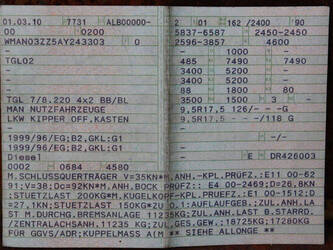 01.03.10 7731 ALB00000-
00 0200
WMAN03ZZ5AY243303 0
-
TGL02
-
-
TGL 7/8.220 4x2 BB/BL
MAN NUTZFAHRZEUGE
LKW KIPPER OFF.KASTEN
-
1999/96/EG;B2,GKL:G1
1999/96/EG;B2,GKL:G1
Diesel
0002 0684 4580
2 01 162 /2400 90
5837-6587 2450-2450
2596-3857 4600
- 1000 -
485 7490 7490
3400 5200 -
3400 5200 -
88 1800 80
3500 1500 3 -
9.5R17,5 126/- - G
9.5R17,5 - -/118 G
-
-
- E DR426003
M.SCHLUSSQUERTRÄGER V=35KN*M.ANH.-KPL.PRÜFZ.:E11 00-62
91:V=38;Dc=92KN*M.ANH.BOCK PRÜFZ.: E4 00-2469;D=26,8KN
;STUETZLAST 200KG*M.KUGELKOPF-KPL.PRÜFZ:E1 00-1512;D
=27,1KN;STUETZLAST 150KG*ZU O.1:AUFLAUFGEB.;ZUL.ANH.LA
ST M.DURCHG.BREMSANLAGE 11235KG;ZUL.ANH.LAST B.STARRD.
/ZENTRALACHSANH.11235 KG;ZUL.GES.GEW.:18725KG *17280KG
FÜR AGVS/ADR;KUPPELMASS AIM ** SIEHE ALLONGE **